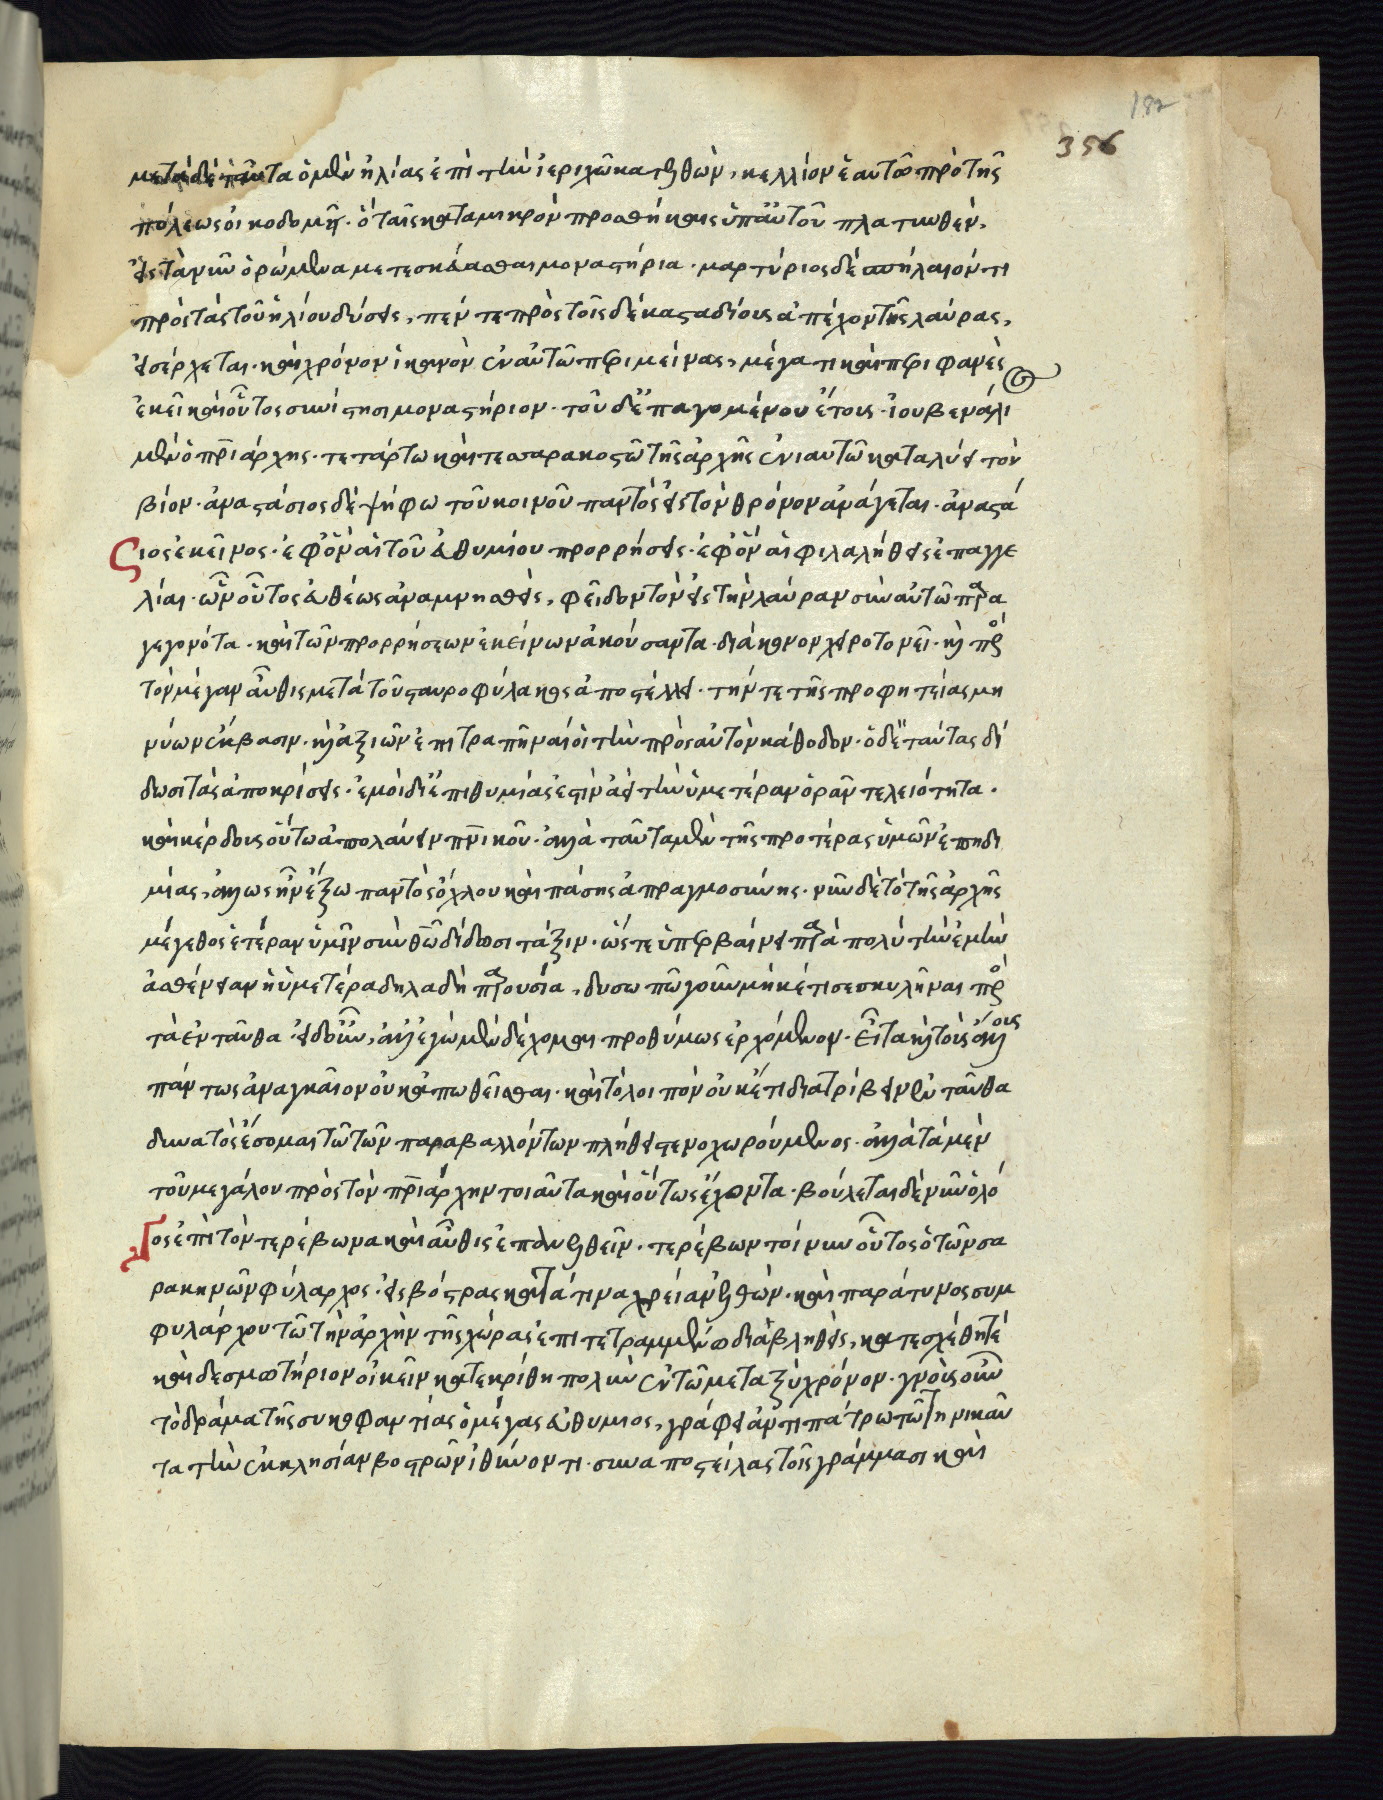 182
356
μετὰ δὲ ταῦτα ὁ μὲν ἠλίας ἐπὶ τὴν ἱεριχῶ κατελθὼν, κελλίον ἑαυτῶ πρὸ τῆς
πόλεως οἰκοδομεῖ· ὁ ταῖς κατα μικρὸν προσθήκαις ὑπ' αὐτοῦ πλατυνθὲν,
εἰς τὰ νῦν ὁρώμενα μετεσκεύασθαι μοναστήρια· μαρτύριος δὲ σπήλαιόν τι
πρὸς τὰς τοῦ ἡλίου δύσεις, πέντε πρὸς τοῖς δέκα σταδίους ἀπέχον τῆς λαύρας,
εἰσέρχεται· καὶ χρόνον ἱκανὸν ἐν αὐτῶ περιμείνας, μέγα τι καὶ περιφανὲς
ἐκεῖ καὶ οὗτος συνίστησι μοναστήριον· τοῦ δ' ἐπαγομένου ἔτους· ἰουβενάλι
μὲν ὁ πριάρχης· τετάρτω καὶ τεσσαρακοστῶ τῆς ἀρχῆς ἐνιαυτῶ καταλύει τὸν
βίον· ἀναστάσιος δὲ ψήφω τοῦ κοινοῦ παντὸς εἰς τὸν θρόνον ἀνάγεται· ἀναστά
σιος ἐκεῖνος· ἐφ' ὃν αἱ τοῦ εὐθυμίου προρρήσεις· ἐφ' ὃν αἱ φιλαλήθεις ἐπαγγε
λίαι· ὧν οὗτος εὐθέως ἀναμνησθεὶς, φεῖδον τὸν εἰς τὴν λαύραν σὺν αὐτῶ πρα
γεγονότα· καὶ τῶν προρρήσεων ἐκείνων ἀκούσαντα· διάκονον χειροτονεῖ· καὶ πρὸς
τὸν μέγαν αὖθις μετὰ τοῦ σταυροφύλακος ἀποστέλλει· τήν τε τῆς προφητείας μη
νύων ἔκβασιν· καὶ ἀξιῶν ἐπιτραπῆναί οἱ τὴν πρὸς αὐτὸν κάθοδον· ὁ δὲ ταύτας δί
δωσι τὰς ἀποκρίσεις· ἐμοὶ δι' ἐπιθυμίας ἐστὶν ἀεὶ τὴν ὑμετέραν ὁρᾶν τελειότητα·
καὶ κέρδους οὕτω ἀπολαύειν πνικοῦ· ἀλλὰ ταῦτα μὲν τῆς προτέρας ὑμῶν ἐπιδη
μίας, ἄλλως ἦν ἔξω παντὸς ὄχλου καὶ πάσης ἀπραγμοσύνης· νῦν δὲ τὸ τῆς ἀρχῆς
μέγεθος ἑτέραν ὑμῖν σὺν θῶ δίδωσι τάξιν· ὥστε ὑπερβαίνει πρὰ πολὺ τὴν ἐμὴν
ἀσθένειαν ἡ ὑμετέρα δηλαδὴ προυσία, δυσωπῶ γοῦν μηκέτι σε σκυλῆναι πρὸς
τὰ ἐνταῦθα εἰ δ' οὖν, ἀλλ' ἐγὼ μὲν δέχομαι προθύμως ἐρχόμενον· εἶτα καὶ τοὺς ἄλλους
πάντως ἀναγκαῖον οὐκ ἀπωθεῖσθαι· καὶ τὸ λοιπὸν οὐκέτι διατρίβειν ἐνταῦθα
δυνατὸς ἔσομαι τῶ τῶν παραβαλλόντων πλήθει στενοχωρούμενος· ἀλλὰ τὰ μὲν
τοῦ μεγάλου πρὸς τὸν πριάρχην τοιαῦτα καὶ οὕτως ἔχοντα· βούλεται δὲ νῦν ὁ λό
γος ἐπὶ τὸν τερέβωνα καὶ αὖθις ἐπανελθεῖν· τερέβων τοίνυν οὗτος ὁ τῶν σα
ρακηνῶν φύλαρχος· εἰς βόστρας κατά τινα χρείαν ἐλθὼν· καὶ παρά τινος συμ
φυλάρχου τῶ τὴν ἀρχὴν τῆς χώρας ἐπιτετραμμένω διαβληθεὶς, κατεσχέθη τε
καὶ δεσμωτήριον οἰκεῖν κατεκρίθη πολὺν ἐν τῶ μεταξὺ χρόνον· γνοὺς οὖν
τὸ δρᾶμα τῆς συκοφαντίας ὁ μέγας εὐθυμιος, γράφει ἀντιπάτρω τῶ τηνικαῦ
τα τὴν ἐκκλησίαν βοστρῶν ἰθύνοντι· συναποστείλας τοῖς γράμμασι καὶ